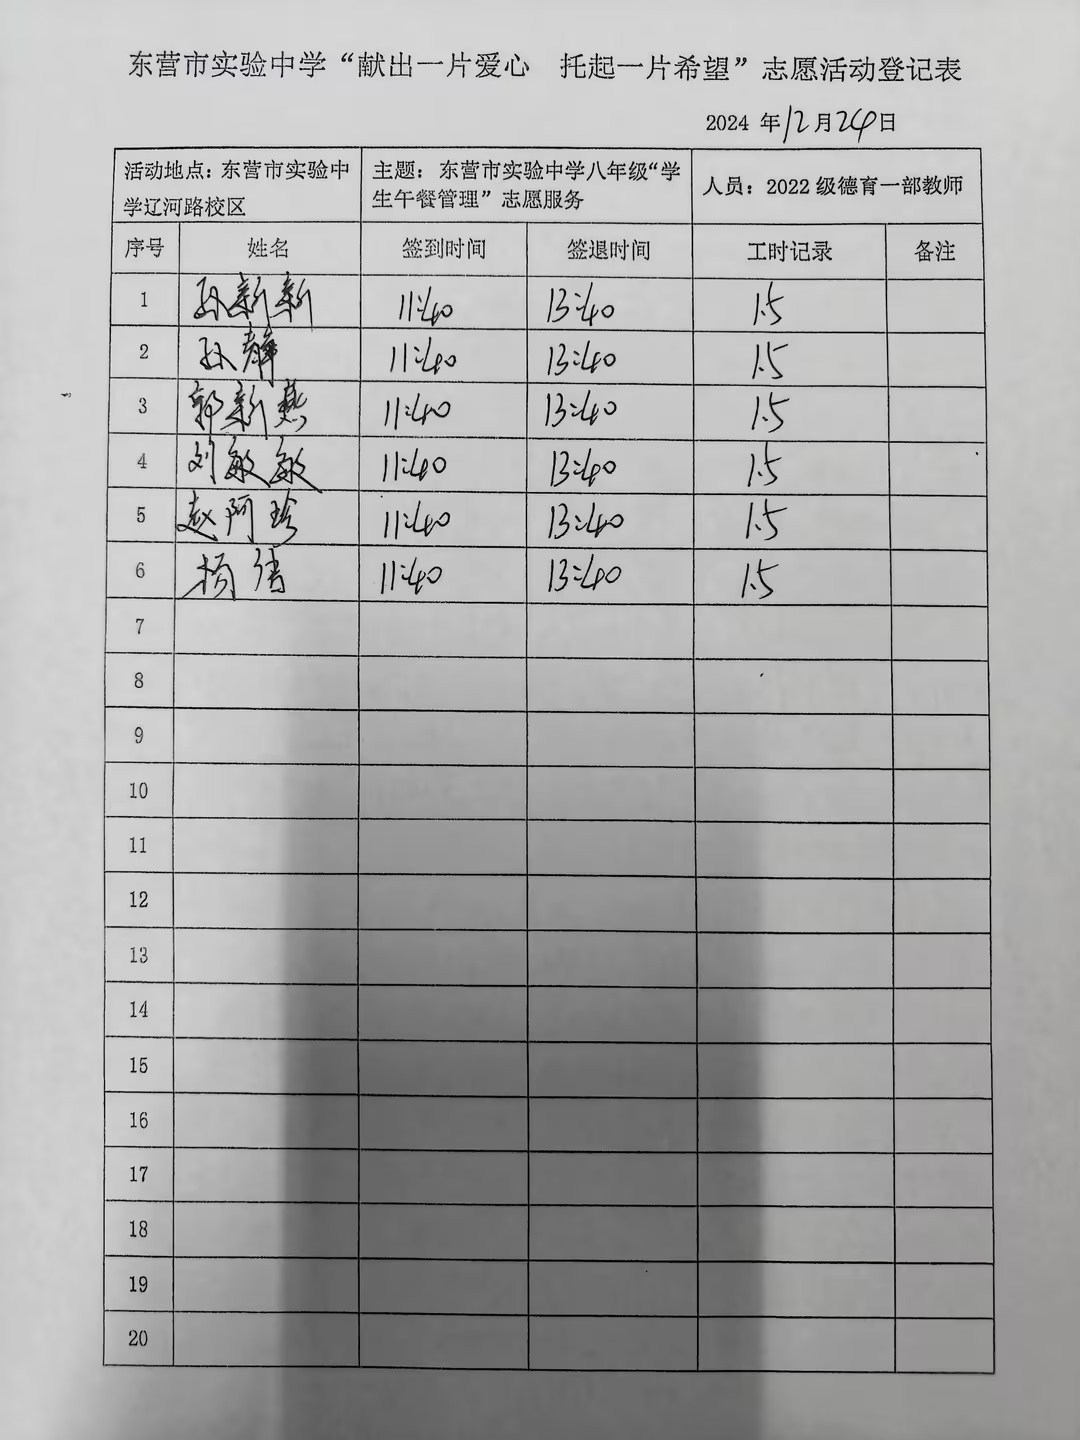 东营市实验中学“献出一片爱心 托起一片希望”志愿活动登记表
2024 年12月24日
活动地点：东营市实验中学辽河路校区 主题：东营市实验中学八年级“学生午餐管理”志愿服务 人员：2022级德育一部教师
序号 姓名 签到时间 签退时间 工时记录 备注
1 孙新新 11:40 13:40 1.5
2 孙静 11:40 13:40 1.5
3 郭新燕 11:40 13:40 1.5
4 刘敏敏 11:40 13:40 1.5
5 赵阿珍 11:40 13:40 1.5
6 杨倩 11:40 13:40 1.5
7
8
9
10
11
12
13
14
15
16
17
18
19
20